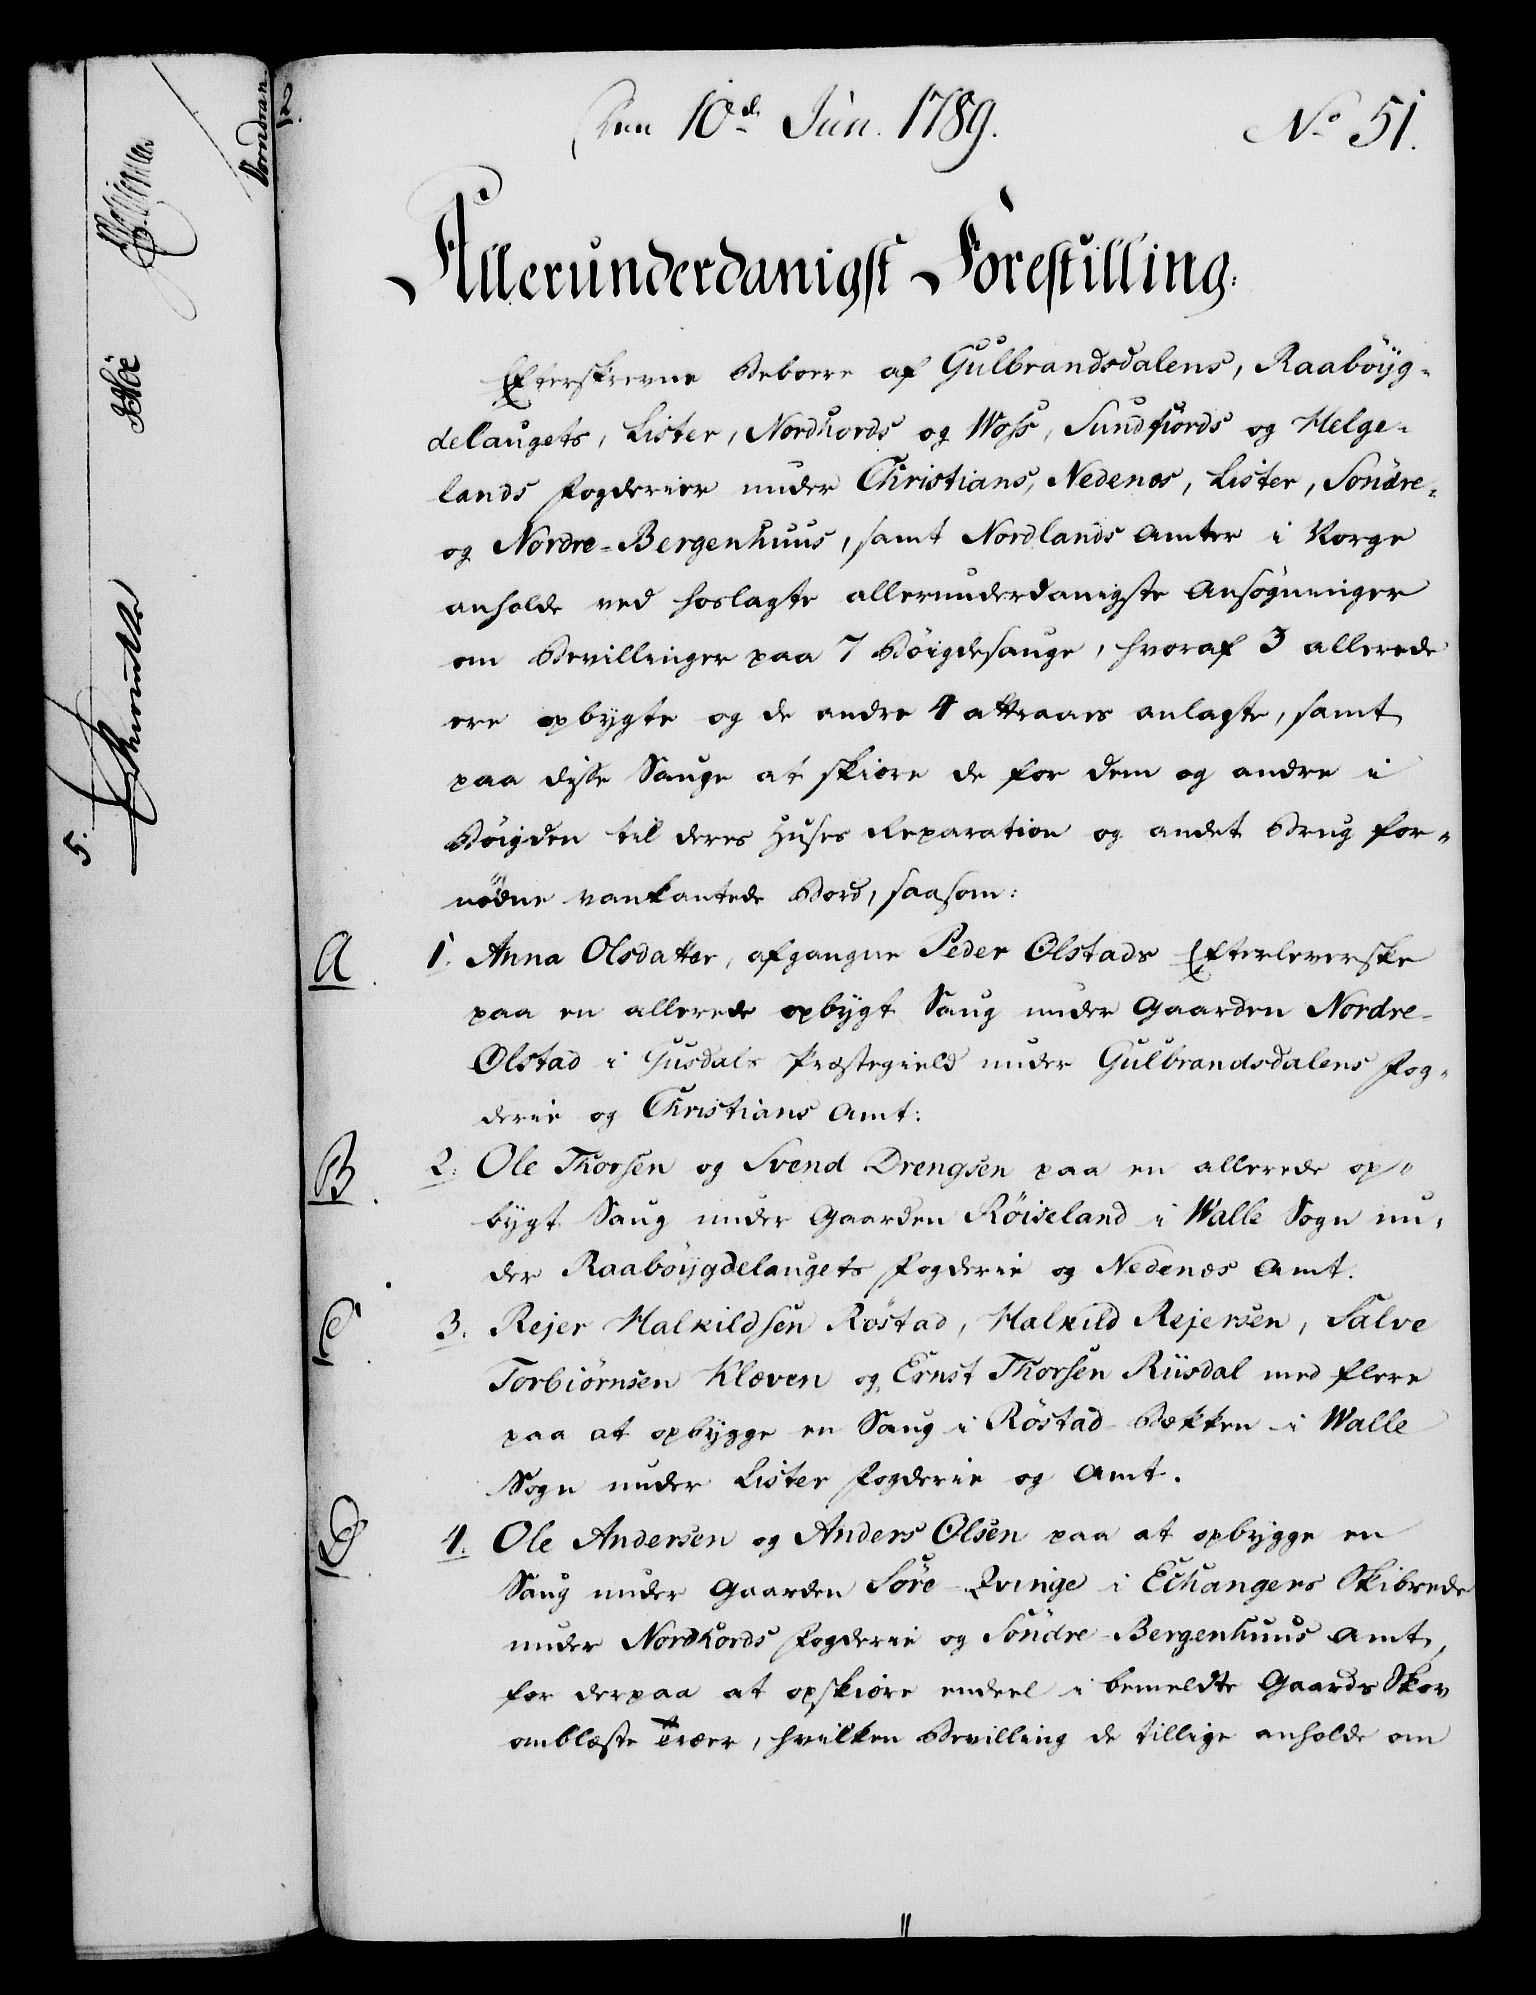 Den 10de Jun. 1789.
No 51.
Allerunderdanigst Forestilling.
Efterskrevne Beboere af Gulbrandsdalens, Raaböyg-
delaugets, Lister, Nordhords og Woss, Sundfiords og Helge-
lands Fogderier under Christians, Nedenes, Lister, Söndre-
og Nordre-Bergenhuus, samt Nordlands Amter i Norge
anholde ved hoslagte allerunderdanigste Ansögninger
om Bevillinger paa 7 Böigdesauge, hvoraf 3 allerede
ere opbygte og de andre 4 attraaes anlagte, samt
paa disse Sauge at skiere de for dem og andre i
Böigden til deres Huses Reparation og andet Brug for-
nödne vankantede Bord, saasom:
A. 1. Anna Olsdatter, afgangne Peder Olstads Efterleverske
paa en allerede opbygt Saug under Gaarden Nordre-
Olstad i Gusdals Præstegield under Gulbrandsdalens Fog-
derie og Christians Amt:
B. 2. Ole Thorsen og Svend Drengsen paa en allerede op-
bygt Saug under Gaarden Röiseland i Walle Sogn un-
der Raaböygdelaugets Fogderie og Nedenes Amt.
C. 3. Rejer Halkildsen Röstad, Halkild Rejersen, Salve
Torbiörnsen Klæven og Ernst Thorsen Riisdal med flere
paa at opbygge en Saug i Röstad-Bekken i Walle
Sogn under Lister Fogderie og Amt.
D. 4. Ole Andersen og Anders Olsen paa at opbygge en
Saug under Gaarden Söre-Qvinge i Echangers Skibrede
under Nordhords Fogderie og Söndre-Bergenhuus Amt,
for derpaa at opskiere endeel i bemeldte Gaards Skov
omblæste Træer, hvilken Bevilling de tillige anholde om
5.